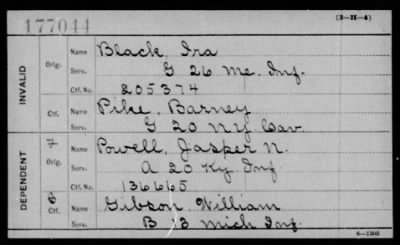 177044
(3-H-4)
INVALID
Orig.
Name Black, Ira
Serv. G 26 Me. Inf.
Ctf. No. 205374
Ctf.
Name Pike, Barney
Serv. G 20 N.Y. Cav.
DEPENDENT
7
Orig.
Name Powell, Jasper N.
Serv. A 20 Ky Inf
Ctf. No. 136665
6
Ctf.
Name Gibson, William
Serv. B 13 Mich Inf.